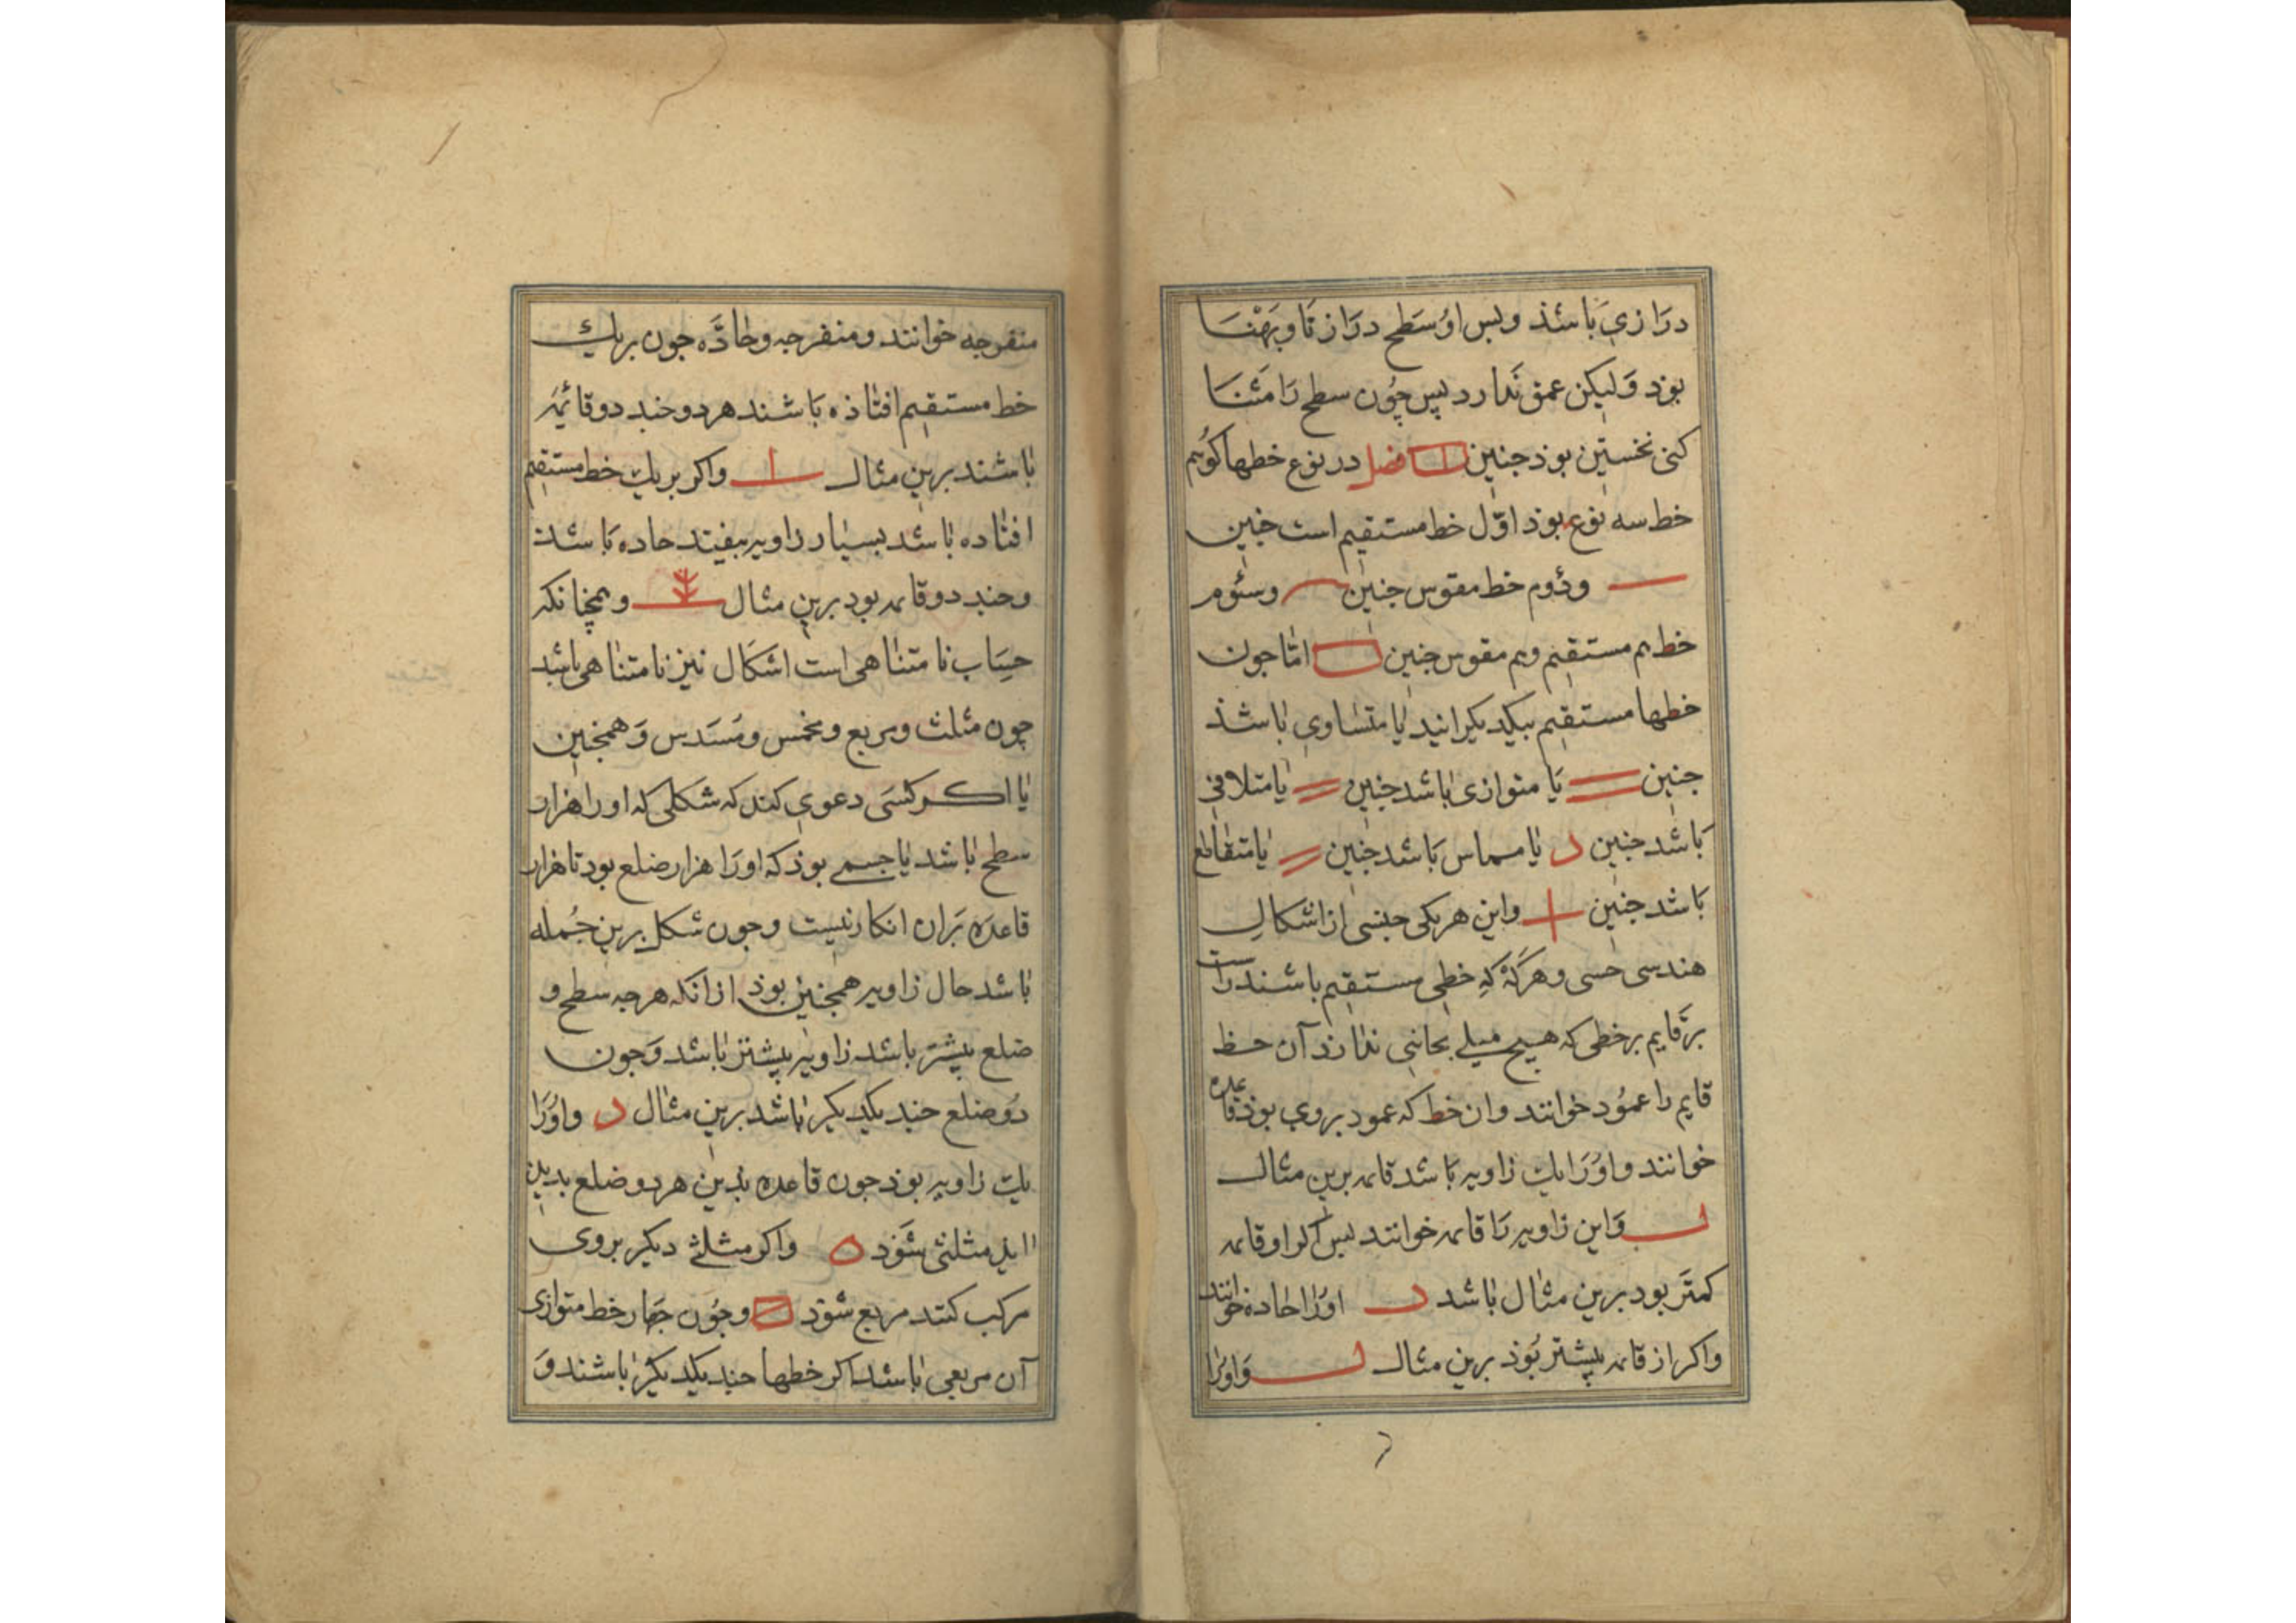 درازی باشذ وبس او سطح درازنا وپهنا
بوذ ولیکن عمق ندارد پس چون سطح را مثنا
کنی نخستین بوذ جنین فصل در نوع خطها کوئیم
خط سه نوع بوذ اوّل خط مستقیم است جنین
ودوم خط مقوس جنین وسئوم
خط هم مستقیم وهم مقوس جنین امّا جون
خطها مستقیم بیکدیکر یا متساوی باشذ
جنین یا متوازی باشد جنین یا متلاقی
باشد جنین یا مماس باشد جنین یا متقاطع
باشد جنین واین هریکی جنسی از اشکال
هندسی حسی وهرکه که خطی مستقیم باشند راست
برقایم برخطی که هیچ میلی بجانبی ندارد آن خط
قایم را عمود خوانند وان خط که عمود بروی بوذ قاعده
خوانند واورا یك زاویه باشد قایمه برین مثال
واین زاویه را قایمه خوانند پس اکر او قایمه
کمتر بود برین مثال باشد اورا حاده خوانند
واکر از قایمه بیشتر بوذ برین مثال واورا
منفرجه خوانند ومنفرجه وحادّه جون بریك
خط مستقیم افتاذه باشند هردو جند دو قائمه
باشند برین مثال واکر بریك خط مستقیم
افتاده باشد بسیار زاویه بیفتد حاده باشد
وجند دو قایمه بود برین مثال وهمچنانکه
حساب نا متناهی است اشکال نیز نامتناهی باشد
چون مثلث ومربع ومخمس ومسدس وهمجنین
یا اکر کسی دعوی کند که شکلی که اورا هزار
سطح باشد یا جسمی بوذ که اورا هزار ضلع بود تا هزار
قاعده بران انکار نیست وجون شکل برین جمله
باشد حال زاویه همجنین بوذ ازانکه هرجه سطح و
ضلع بیشتر باشد زاویه بیشتر باشد وجون
دو ضلع جند یکدیکر باشد برین مثال واورا
یك زاویه بوذ جون قاعده بذین هردو ضلع بدین
مثلثی شود واکر مثلثی دیکر بروی
مرکب کنند مربع شوذ وجون جهار خط متوازی
آن مربعی باشد اکر خطها جند یکدیکر باشند و